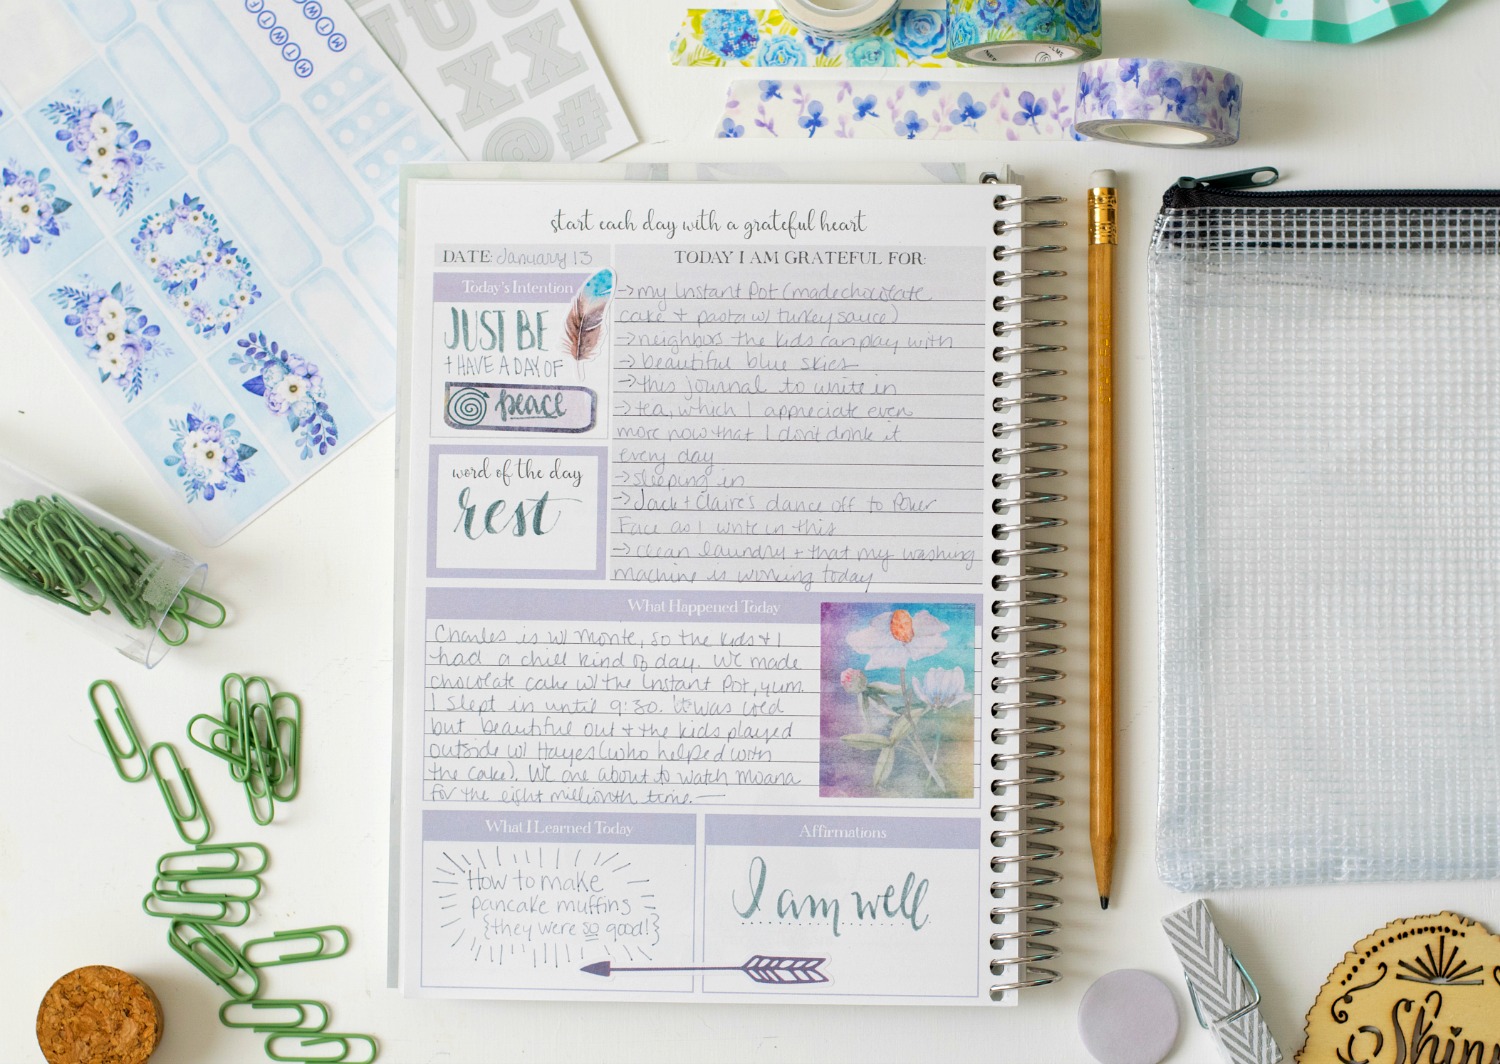 start each day with a grateful heart
DATE: January 13
Today's Intention
JUST BE
+ HAVE A DAY OF
peace
word of the day
rest
TODAY I AM GRATEFUL FOR:
→ my Instant Pot (made chocolate
cake + pasta w/ turkey sauce)
→ neighbors the kids can play with
→ beautiful blue skies
→ this journal to write in
→ tea, which I appreciate even
more now that I don't drink it
every day
→ sleeping in
→ Jack + Claire's dance off to Poker
Face as I write in this
→ clean laundry + that my washing
machine is working today
What Happened Today
Charles is w/ Monte, so the kids + I
had a chill kind of day. We made
chocolate cake w/ the Instant Pot, yum.
I slept in until 9:30. It was cold
but beautiful out + the kids played
outside w/ Hayes (who helped with
the cake). We are about to watch Moana
for the eight millionth time.
What I Learned Today
How to make
pancake muffins
{they were so good!}
Affirmations
I am well
M T W T F
M T W T F
X X
X #
@
Shin